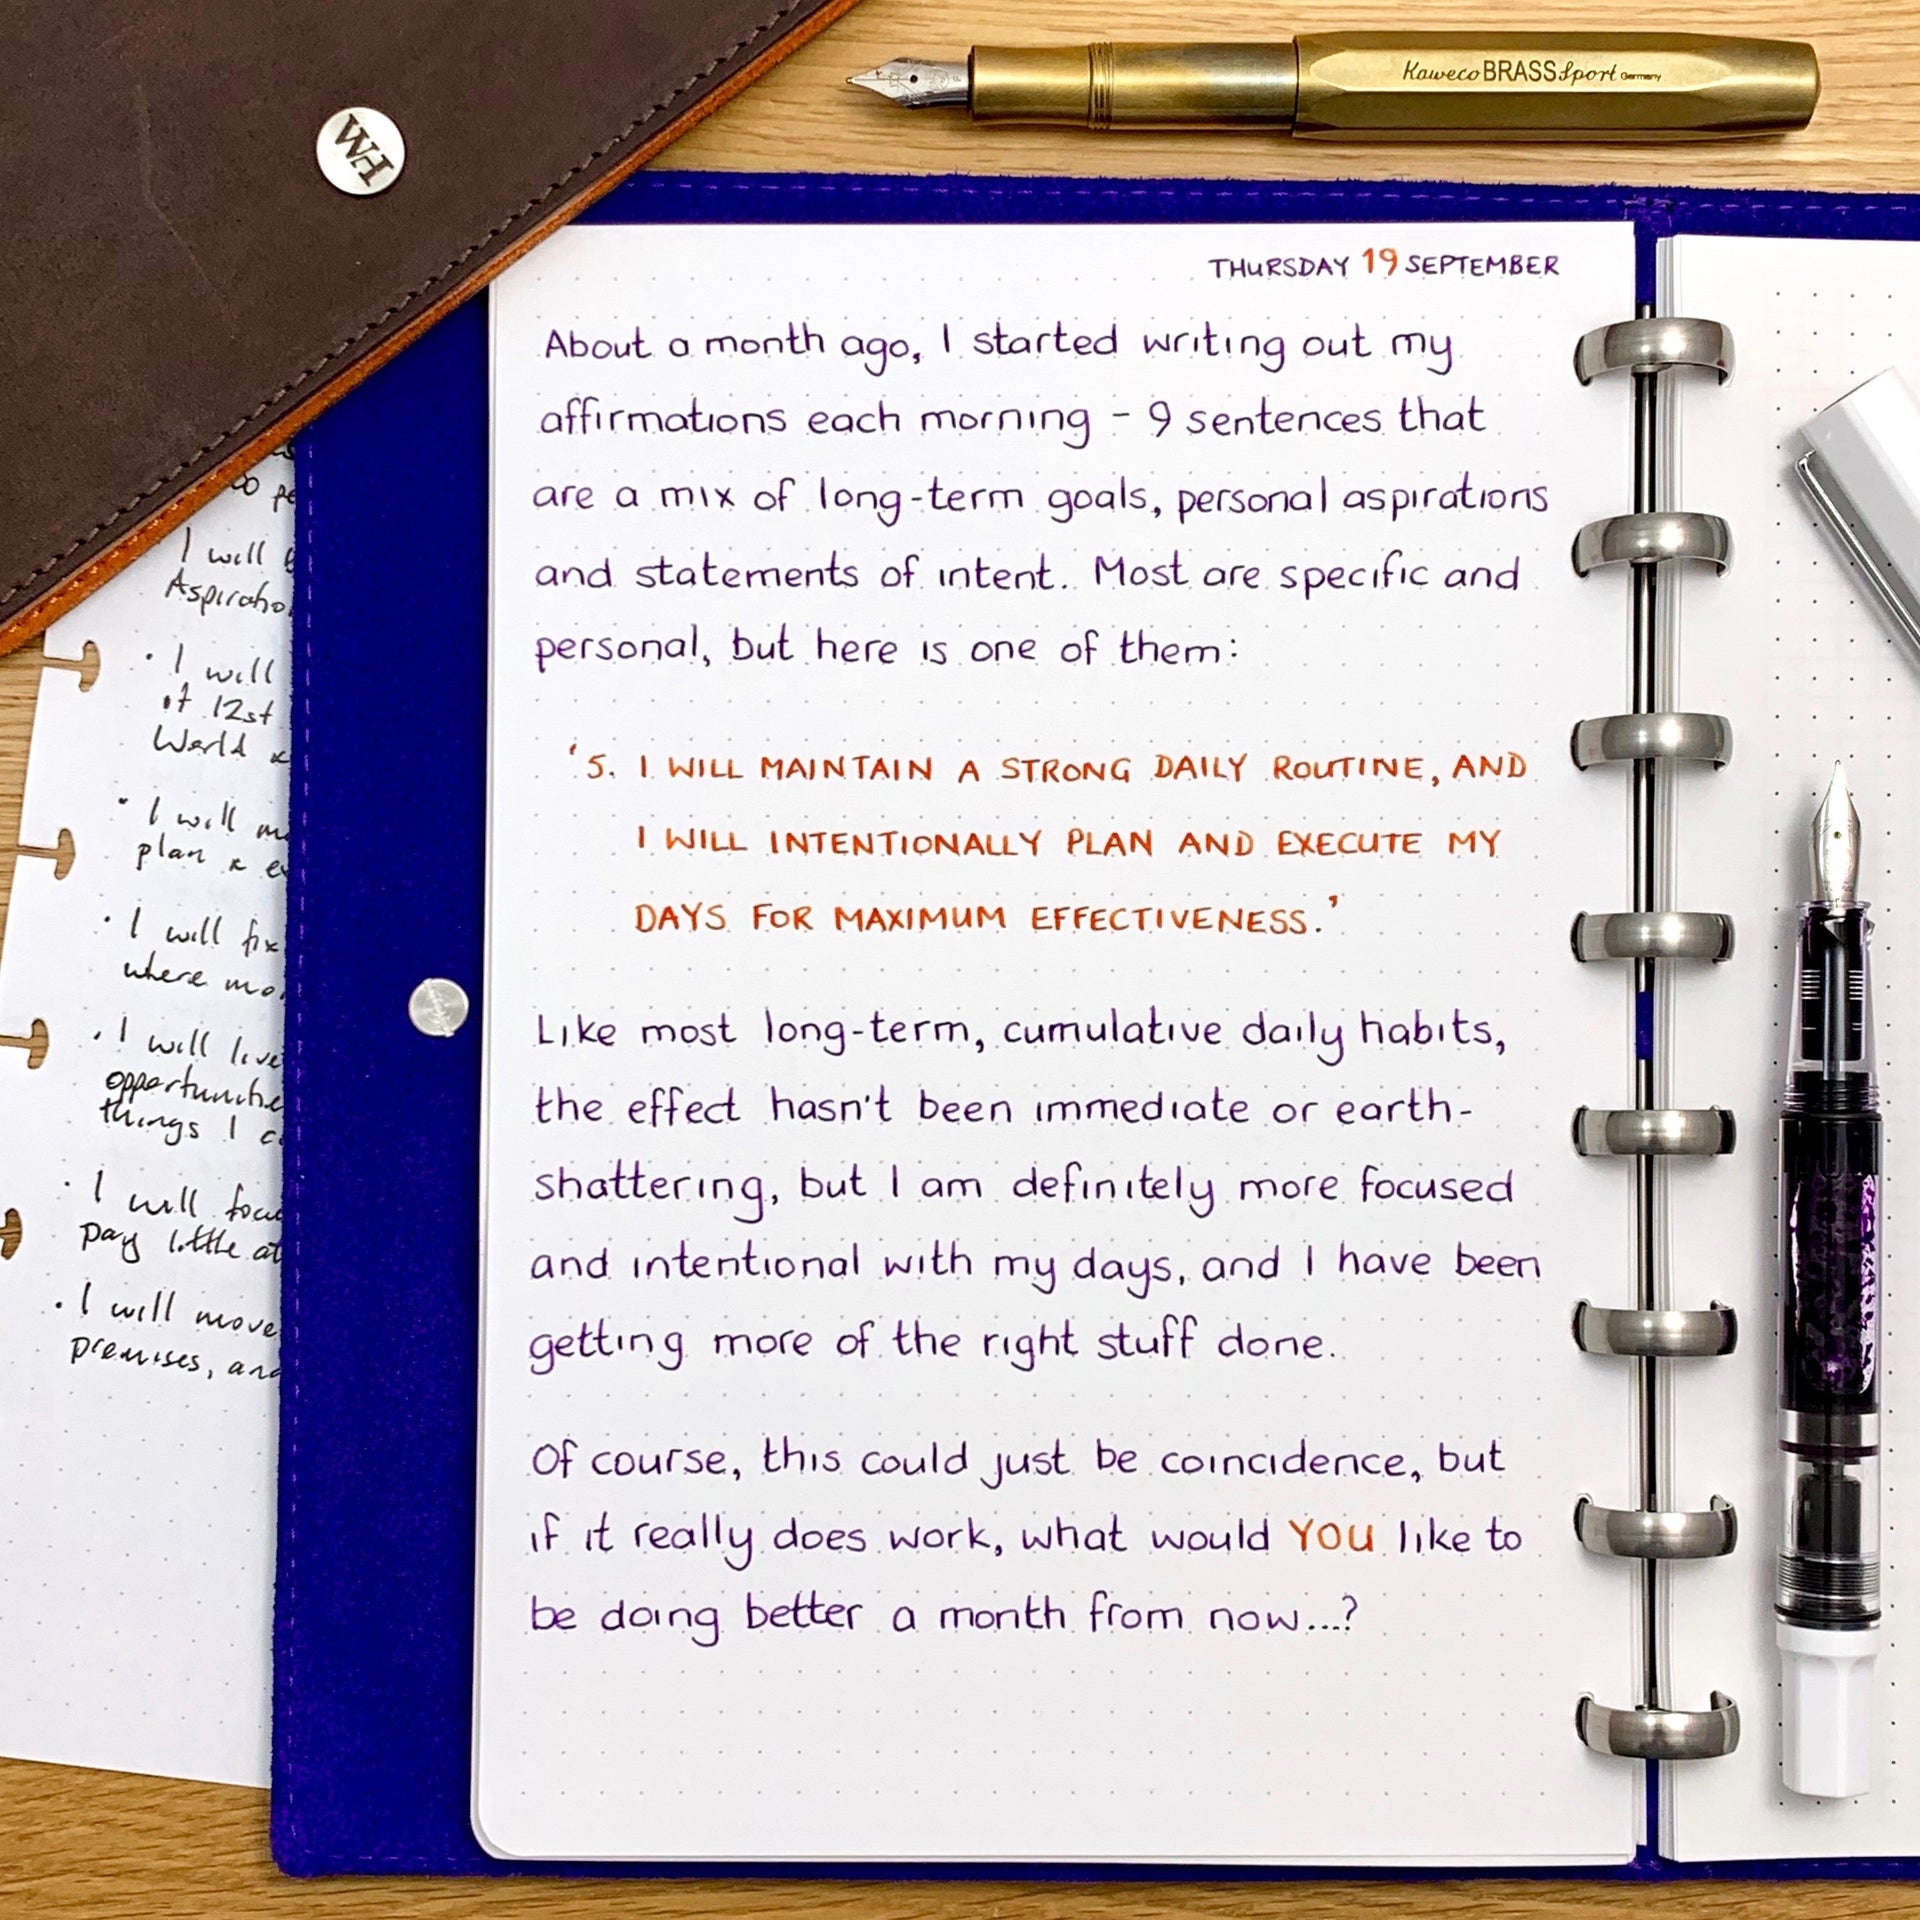 WH
Kaweco BRASS Sport Germany
THURSDAY 19 SEPTEMBER
About a month ago, I started writing out my
affirmations each morning - 9 sentences that
are a mix of long-term goals, personal aspirations
and statements of intent. Most are specific and
personal, but here is one of them:
'5. I WILL MAINTAIN A STRONG DAILY ROUTINE, AND
I WILL INTENTIONALLY PLAN AND EXECUTE MY
DAYS FOR MAXIMUM EFFECTIVENESS.'
Like most long-term, cumulative daily habits,
the effect hasn't been immediate or earth-
shattering, but I am definitely more focused
and intentional with my days, and I have been
getting more of the right stuff done.
Of course, this could just be coincidence, but
if it really does work, what would YOU like to
be doing better a month from now...?
I will
· I will
of 12st
World &
· I will
plan &
· I will fix
where
· I will live
things I
· I will
pay little
· I will move
premises,